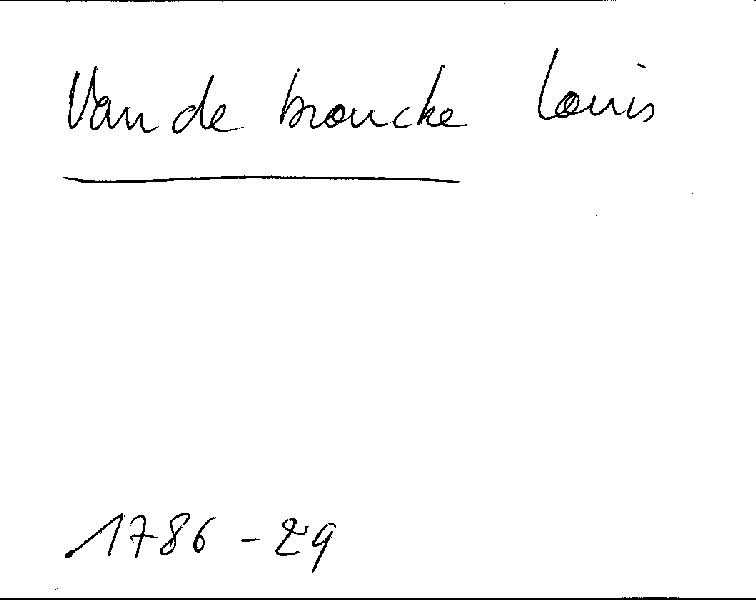 Van de broucke Louis
1786 - 29